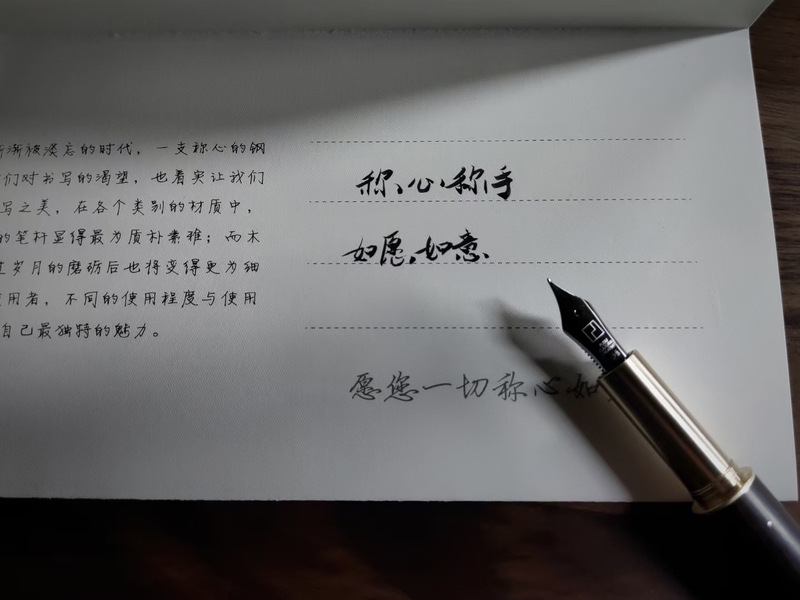 渐被淡忘的时代，一支称心的钢
们对书写的渴望，也着实让我们
写之美，在各个类别的材质中，
的笔杆显得最为质朴素雅；而木
过岁月的磨砺后也将变得更为细
使用者，不同的使用程度与使用
自己最独特的魅力。
称心称手
如愿如意
愿您一切称心如